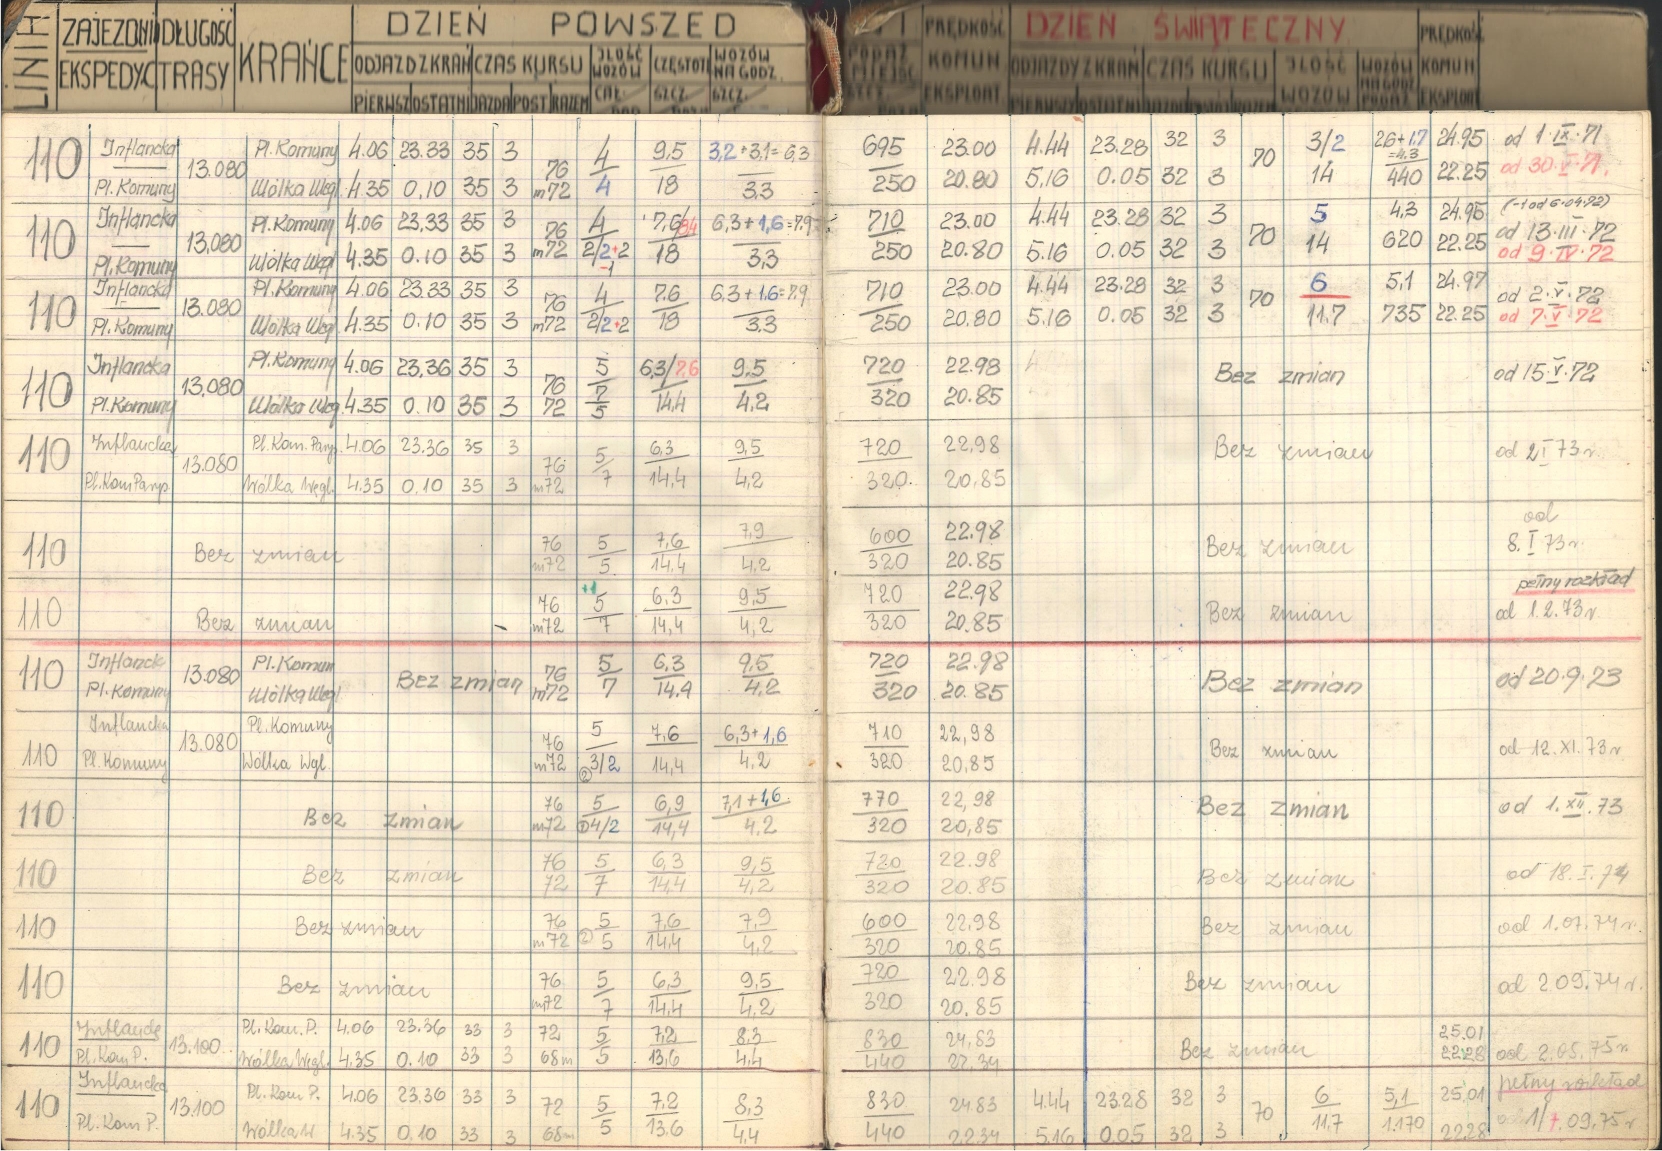 LINIA ZAJEZDNIA DŁUGOŚĆ KRAŃCE DZIEŃ POWSZED PRĘDKOŚĆ DZIEŃ ŚWIĄTECZNY PRĘDKOŚ
EKSPEDYC TRASY ODJAZD Z KRAŃ CZAS KURSU JLOŚĆ WOZÓW CZĘSTOT WOZÓW NA GODZ. KOMUN ODJAZDY Z KRAŃ CZAS KURSU JLOŚĆ WOZÓW KOMUN
PIERWSZ OSTATNI JAZDA POST RAZEM SZCZ. SZCZ. EKSPLOAT EKSPLOAT
110 Inflancka 13.080 Pl.Komuny 4.06 23.33 35 3 76 4 9,5 3,2+3,1=6,3 695 23.00 4.44 23.28 32 3 70 3/2 26+1.7 =4.3 24.95 od 1.IX.71
Pl.Komuny Wólka Węgl 4.35 0.10 35 3 m72 4 18 3,3 250 20.80 5.16 0.05 32 3 14 440 22.25 od 30.V.71.
(-1 od 6.04.72)
110 Inflancka 13,080 Pl.Komuny 4.06 23,33 35 3 76 4 7,6/94 6,3+1,6=7,9 710 23.00 4.44 23.28 32 3 70 5 4,3 24.95 od 13.III.72
Pl.Komuny Wólka Węgl 4.35 0.10 35 3 m72 2/2+2 -1 18 3,3 250 20.80 5.16 0.05 32 3 14 620 22.25 od 9.IV.72
110 Inflancka 13.080 Pl.Komuny 4.06 23.33 35 3 76 4 7.6 6,3+1.6=7.9 710 23.00 4.44 23.28 32 3 70 6 5,1 24.97 od 2.V.72
Pl.Komuny Wólka Węgl 4.35 0.10 35 3 m72 2/2+2 18 3.3 250 20.80 5.16 0.05 32 3 11.7 735 22.25 od 7.V.72
110 Inflancka 13.080 Pl.Komuny 4.06 23,36 35 3 76 5 6,3/7.6 9.5 720 22.98 Bez zmian od 15.V.72
Pl.Komuny Wólka Węg. 4.35 0.10 35 3 72 7 5 14,4 4,2 320 20.85
110 Inflancka 13.080 Pl.Kom.Parys. 4.06 23.36 35 3 76 5 6,3 9,5 720 22,98 Bez zmian od 2I73r.
Pl.KomParys Wólka Węgl. 4.35 0.10 35 3 m72 7 14,4 4,2 320. 20,85
110 Bez zmian 76 5 7,6 7,9 600 22.98 Bez zmian od 8.I 73r.
m72 5 14,4 4,2 320 20.85
pełny rozkład
110 Bez zmian 76 +1 5 6,3 9,5 720 22.98 Bez zmian od 1.2.73r.
m72 7 14,4 4,2 320 20.85
110 Inflanck 13.080 Pl.Komun Bez zmian 76 5 6,3 9,5 720 22.98 Bez zmian od 20.9.73
Pl.Komuny Wólka Węgl m72 7 14.4 4,2 320 20.85
110 Inflancka 13.080 Pl.Komuny 76 5 7,6 6,3+1,6 710 22,98 Bez zmian od 12.XI.73r
Pl.Komuny Wólka Wgl m72 ② 3/2 14,4 4,2 320 20,85
110 Bez zmian 76 5 6,9 7,1+1,6 770 22,98 Bez zmian od 1.XII.73
m72 ① 4/2 14,4 4.2 320 20,85
110 Bez zmian 76 5 6,3 9,5 720 22.98 Bez zmian od 18.I.74
72 7 14,4 4,2 320 20.85
110 Bez zmian 76 5 7,6 7,9 600 22,98 Bez zmian od 1.07.74r.
m72 ② 5 14,4 4,2 320 20.85
110 Bez zmian 76 5 6,3 9,5 720 22.98 Bez zmian od 2.09.74r.
m72 7 14,4 4.2 320 20.85
110 Inflancka 13.100 Pl.Kom.P. 4.06 23.36 33 3 72 5 7,2 8.3 830 24,83 Bez zmian 25.01
Pl.Kom P. Wólka Węgl. 4.35 0.10 33 3 68m 5 13,6 4.4 440 22.34 22.28 od 2.05.75r.
pełny rozkład
110 Inflancka 13.100 Pl.Kom P. 4.06 23.36 33 3 72 5 7,2 8,3 830 24.83 4.44 23.28 32 3 70 6 5,1 25.01 od 1/7.09.75r
Pl.Kom P. Wólka W 4.35 0.10 33 3 68m 5 13,6 4,4 440 22.34 5.16 0.05 32 3 11,7 1.170 22.28